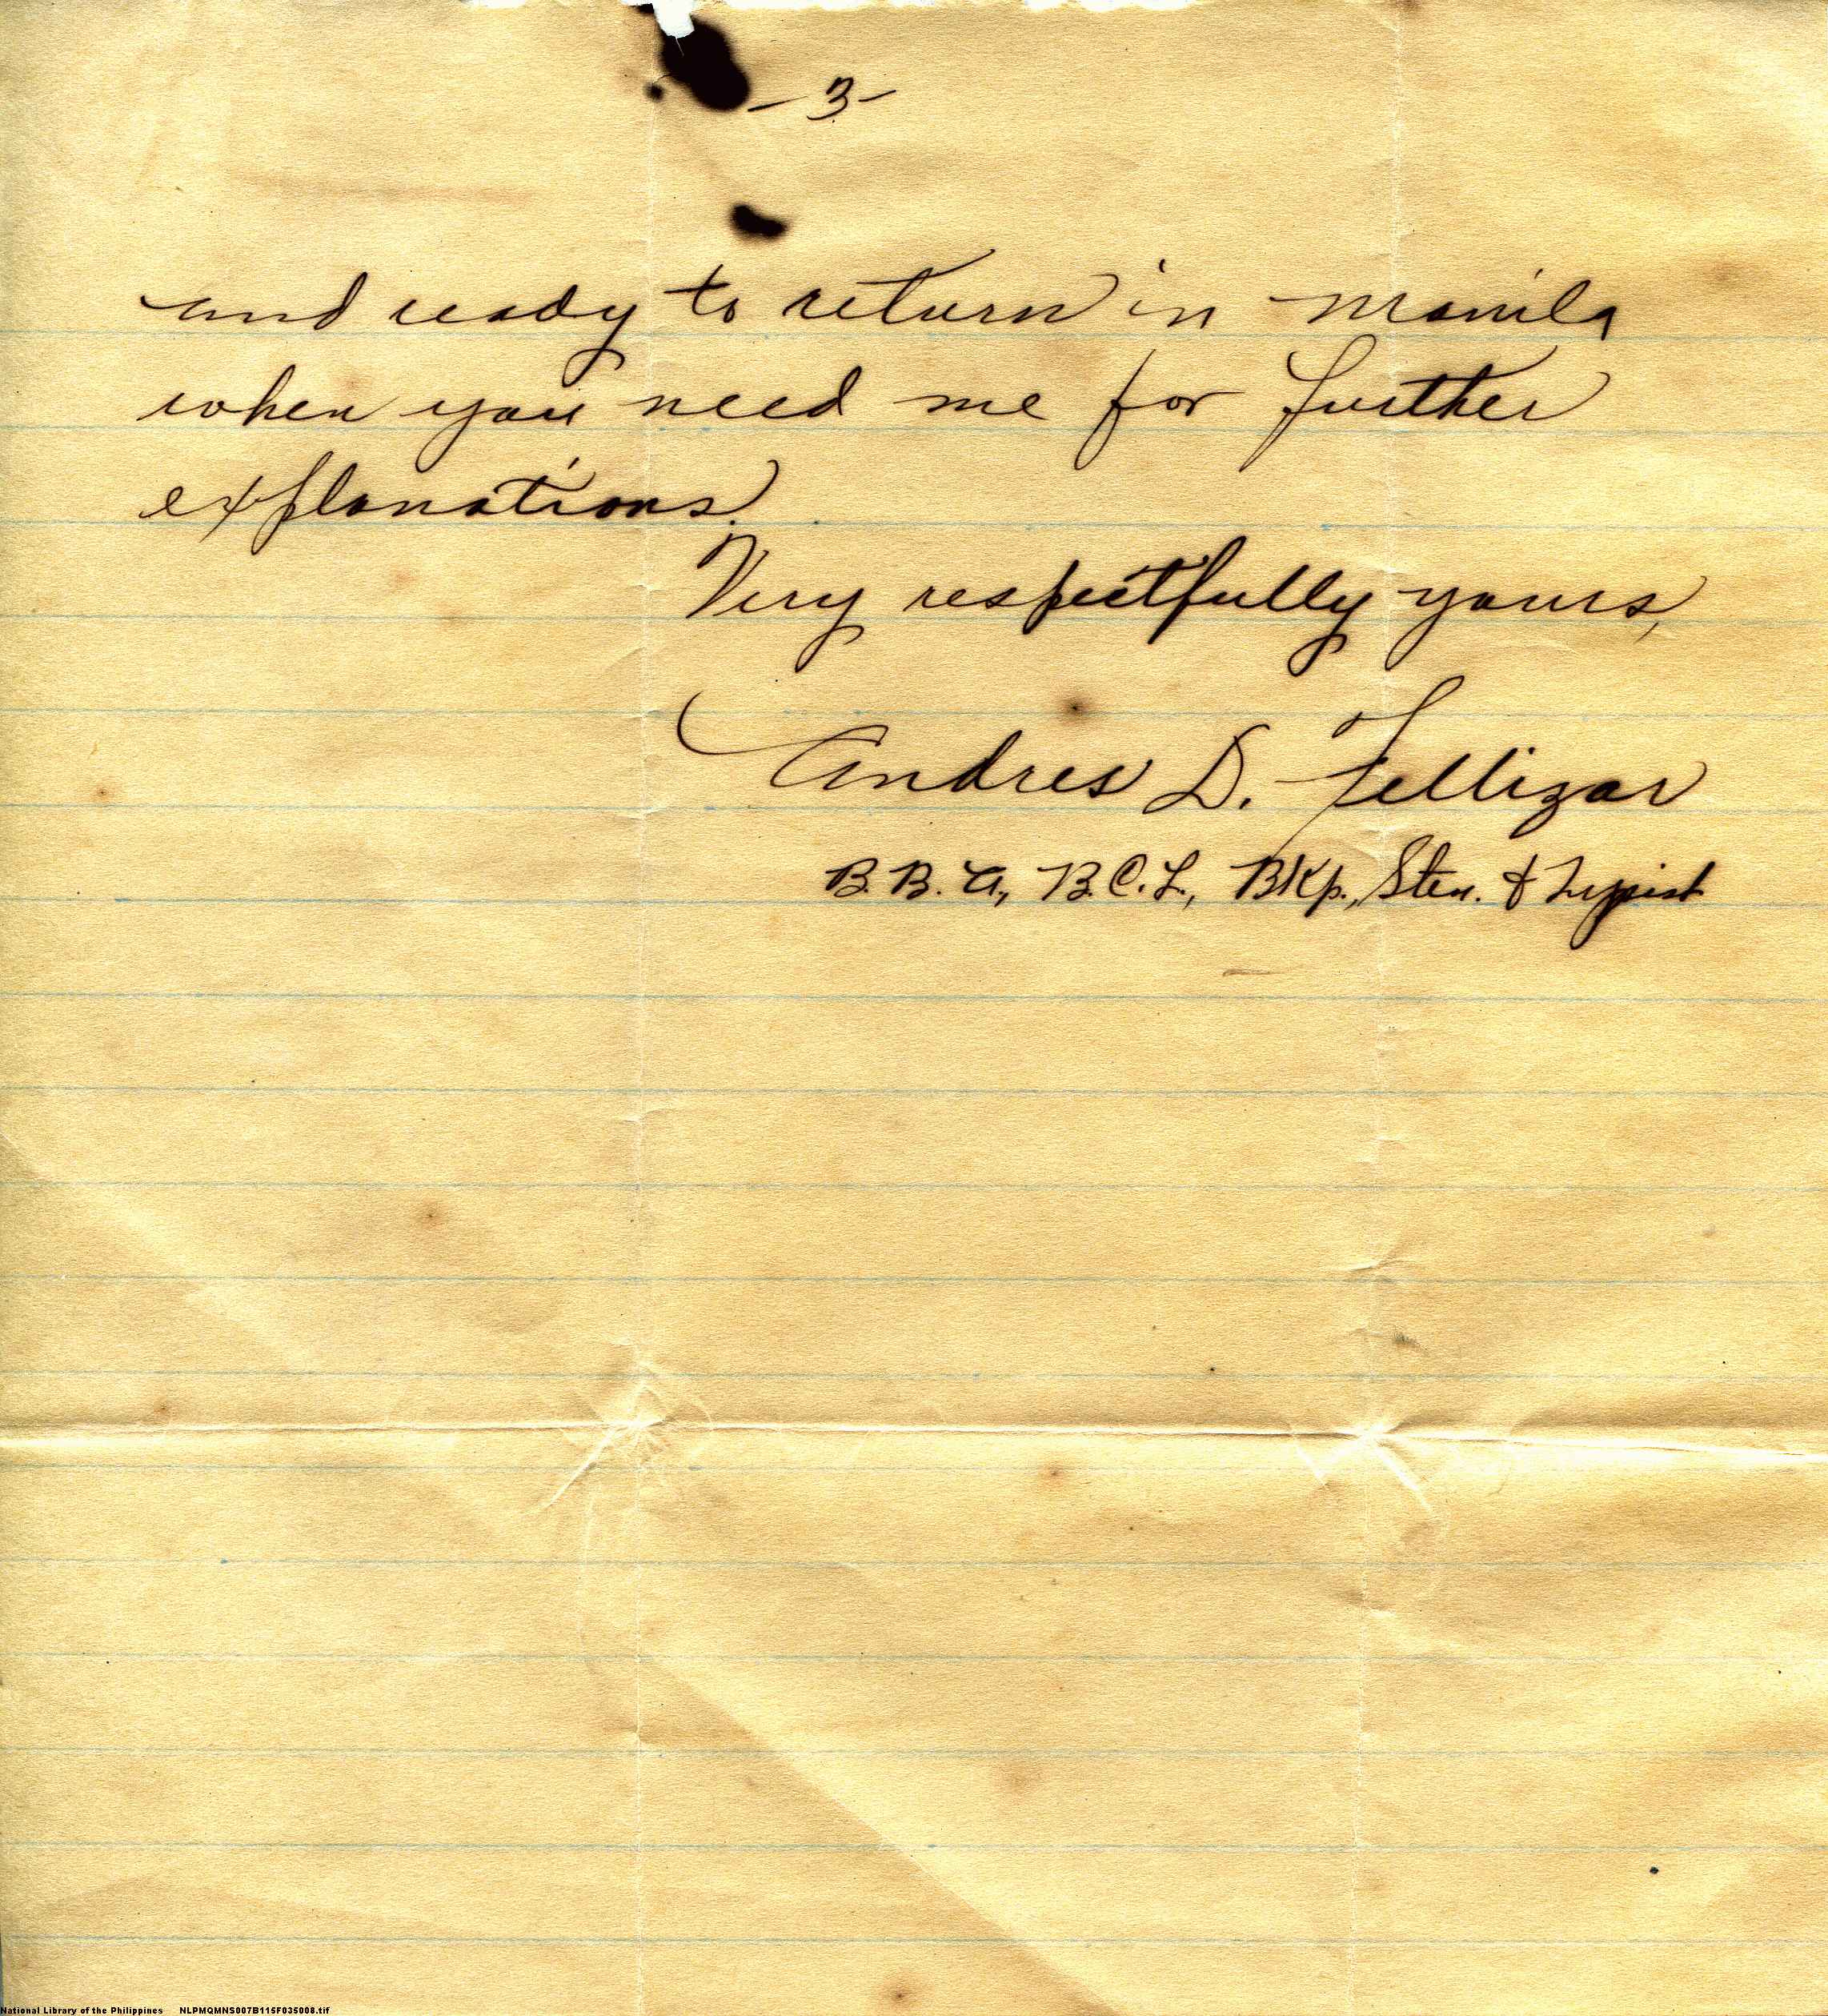 - 3 -
and ready to return in Manila
when you need me for further
explanations.
Very respectfully yours,
Andres D. Fellizar
B.B.A., B.C.L., Bkp., Sten. & Typist
National Library of the Philippines NLPMQMNS007B115F035008.tif